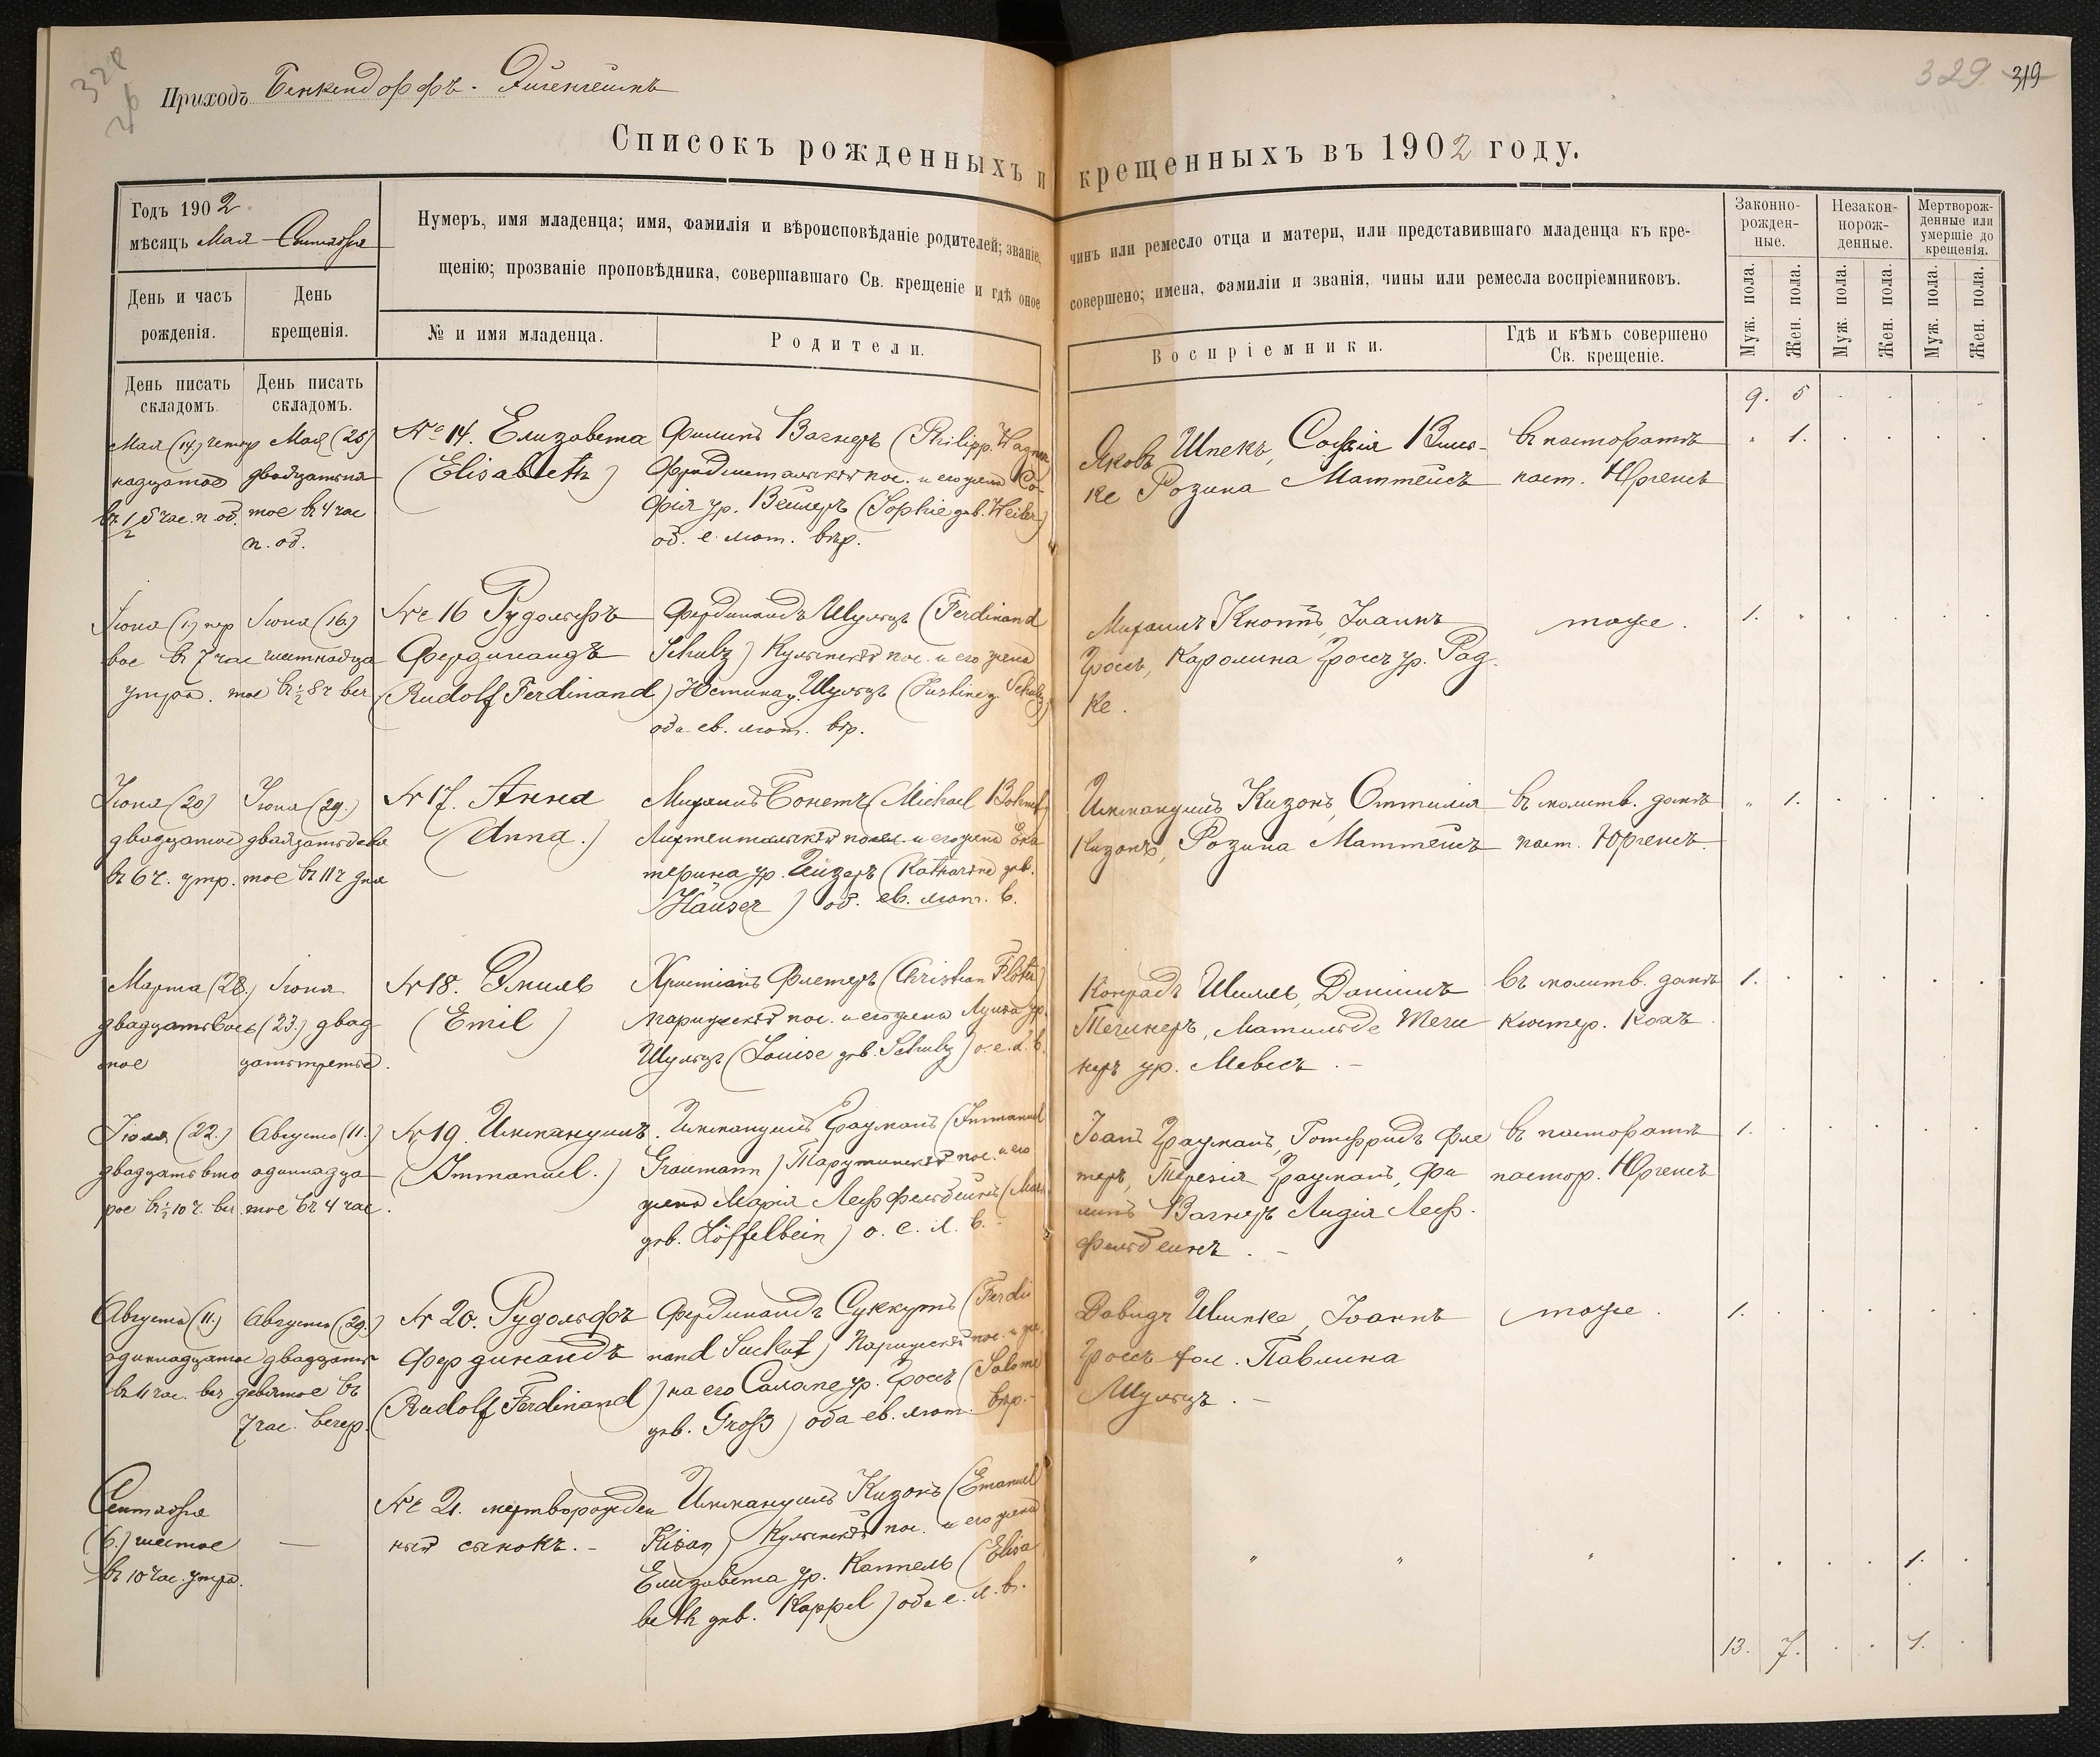 328
Приходъ Бенкендорфъ. Эйгенгеймъ
329 319
Списокъ рожденныхъ и крещенныхъ въ 1902 году.
Годъ 1902
мѣсяцъ Мая - Сентября
День и часъ рожденія.
День крещенія.
Нумеръ, имя младенца; имя, фамилія и вѣроисповѣданіе родителей; званіе, чинъ или ремесло отца и матери, или представившаго младенца къ кре-
щенію; прозваніе проповѣдника, совершавшаго Св. крещеніе и гдѣ оное совершено; имена, фамиліи и званія, чины или ремесла воспріемниковъ.
№ и имя младенца.
Родители.
Воспріемники.
Гдѣ и кѣмъ совершено
Св. крещеніе.
Законно-
рожден-
ные.
Незакон-
норож-
денные.
Мертворож-
денные или
умершіе до
крещенія.
Муж. пола.
Жен. пола.
Муж. пола.
Жен. пола.
Муж. пола.
Жен. пола.
День писать
складомъ.
День писать
складомъ.
9. 5
Мая (14) четыр
надцатое
въ 1/2 5 час. п. об.
Мая (25)
двадцатьпя
тое въ 4 час
п. об.
№ 14. Елизавета
(Elisabeth)
Филипъ Вагнеръ (Philipp Wagner
пос. и его жена Со-
фія ур. Вейлеръ (Sophie geb. Weiler)
об. е. лют. вѣр.
Яковъ Шпекъ, Софія
ке Розина Маттейсъ
въ пасторатѣ
паст. Юргенсъ
" 1.
Іюня (1) пер
вое въ 7 час
утра.
Іюня (16)
шестнадца
тое въ 1/2 8 ч веч
№ 16 Рудольфъ
Фердинандъ
(Rudolf Ferdinand)
Фердинандъ Шульцъ (Ferdinand
Schulz) Кульмскій пос. и его жена
Юстина у. Шульцъ (Justine g. Schulz)
оба ев. лют. вѣр.
Михаилъ Кноппъ, Іоаннъ
Гроссъ, Каролина Гроссъ ур. Рад
ке.
тоже.
1.
Іюня (20)
двадцатое
въ 6 ч. утр.
Іюня (29.)
двадцатьдевя
тое въ 11 ч дня
№ 17. Анна
(Anna.)
Михаилъ Бонетъ (Michael Bohnet)
Лихтентальскій посел. и его жена Ека
терина ур. Гейзеръ (Katharine geb.
Häuser) об. ев. лют. в.
Иммануилъ Кизонъ, Оттилія
Кизонъ, Розина Маттейсъ
въ молитв. домѣ
паст. Юргенсъ.
" 1.
Марта (28.)
двадцатьвось
мое
Іюня
(23.) двад-
цатьтретье.
№ 18. Эмиль
(Emil)
Христіанъ Флетеръ (Christian Flöter)
Парижскій пос. и его жена Луиза ур.
Шульцъ (Louise geb. Schulz) о. е. л. в.
Конрадъ Шилль, Даніилъ
Течнеръ, Матильде Теч
неръ ур. Мевесъ. -
въ молитв. домѣ
Кюстер. Кохъ.
1.
Іюля (22.)
двадцатьвто
рое въ 1/2 10 ч. веч.
Августа (11.)
одиннадца
тое въ 4 час.
№ 19. Иммануилъ.
(Immanuel.)
Иммануилъ Грауманъ (Immanuel
Graumann) Тарутинскій пос. и его
жена Марія Леффельбейнъ
geb. Löffelbein) о. е. л. в. -
Іоанъ Грауманъ, Готфридъ Фле
теръ, Терезія Грауманъ, Фи
липъ Вагнеръ Лидія Леф-
фельбейнъ. -
въ пасторатѣ
пастор. Юргенсъ
1.
Августа (11.)
одиннадцатое
въ 11 час. веч
Августа (29.)
двадцать
девятое въ
7 час. вечер.
№ 20. Рудольфъ
Фердинандъ
(Rudolf Ferdinand)
Фердинандъ Суккутъ (Ferdi
nand Suckut) Парижскій пос. и же
на его Саломе ур. Гроссъ (Salome
geb. Groß) оба ев. лют. вѣр. -
Давидъ Шимке, Іоаннъ
Гроссъ, Павлина
Шульцъ. -
тоже.
1.
Сентября
(6.) шестое
въ 10 час. утра.
-
№ 21. мертворожден
ный сынокъ. -
Иммануилъ Кизонъ (Emanuel
Kison) Кульмскій пос. и его жена
Елизавета ур. Каппель (Elisa
beth geb. Kappel) оба е. л. в.
" " "
1.
13. 7. 1.